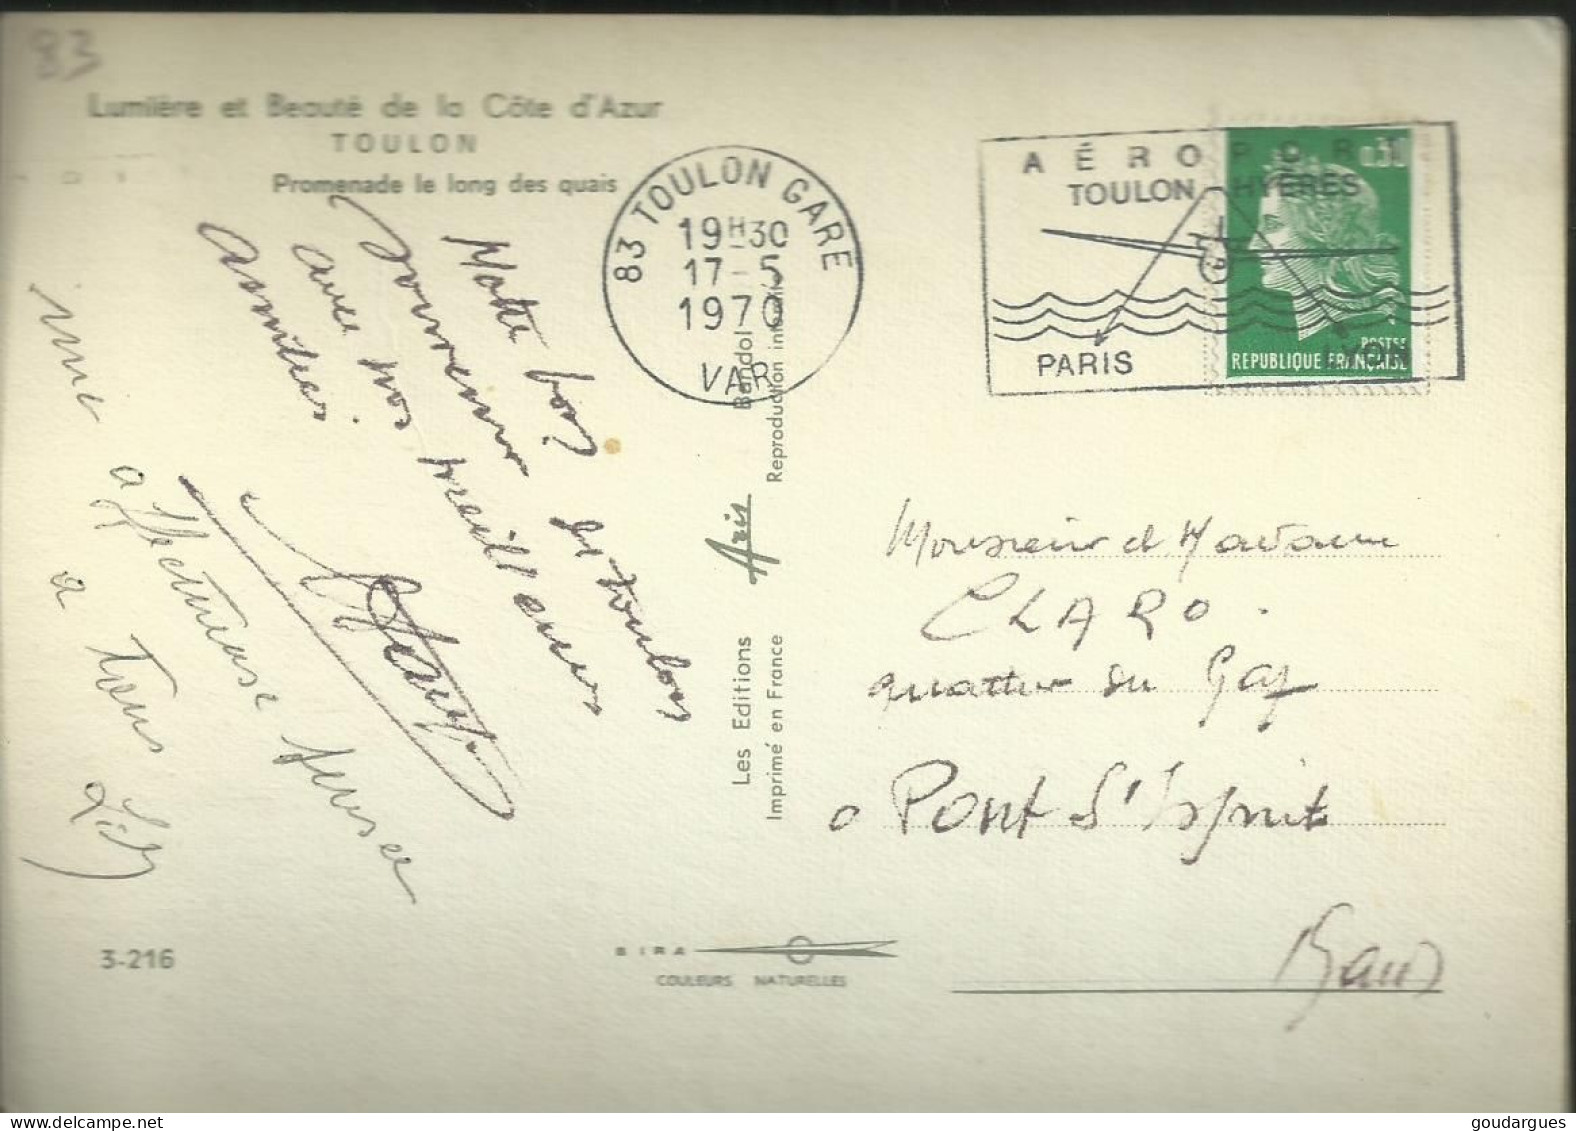 83
Lumière et Beauté de la Côte d'Azur
TOULON
Promenade le long des quais
83 TOULON GARE
19H30
17-5
1970
VAR
AÉROPORT
TOULON-HYÈRES
PARIS
LYON
0.30
POSTES
REPUBLIQUE FRANÇAISE
de Toulon
avec nos meilleures
amitiés.
une affectueuse pensée
à tous
Les Editions Aris Bandol
Imprimé en France
Reproduction
Monsieur et Madame
CLARO.
quartier du Gaz
Pont St Esprit
Gard
3-216
SIRA
COULEURS NATURELLES
goudargues